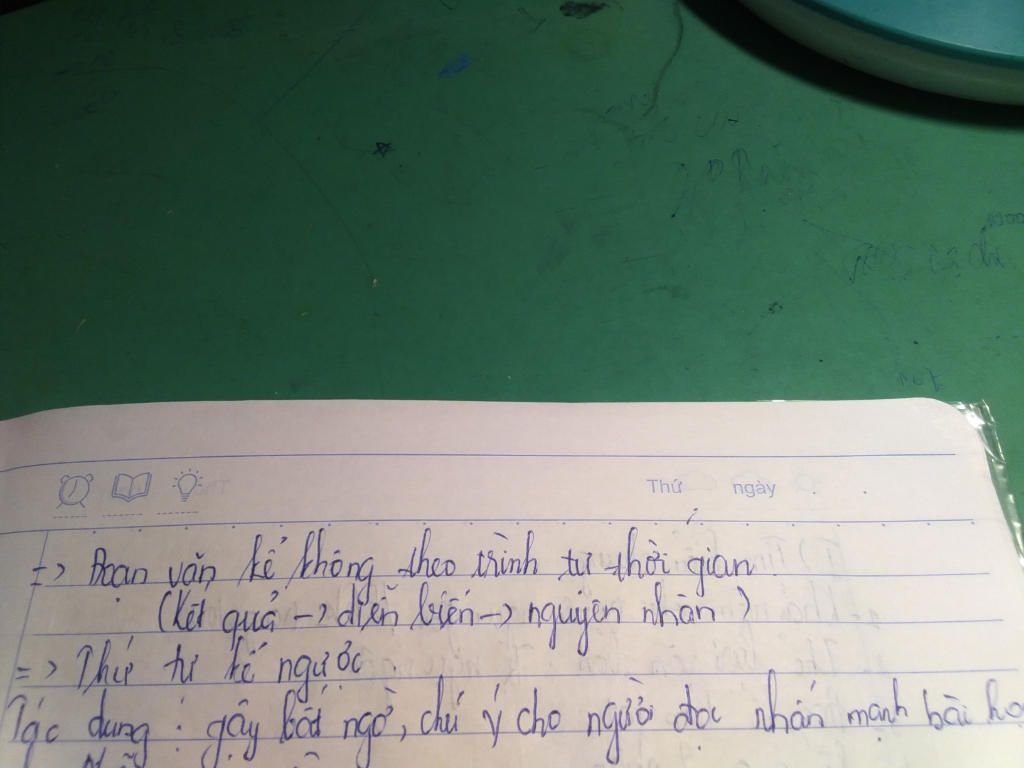 Thứ ngày
=> Đoạn văn kể không theo trình tự thời gian
(Kết quả -> diễn biến -> nguyên nhân)
=> Thứ tự kể ngược.
Tác dụng: gây bất ngờ, chú ý cho người đọc nhấn mạnh bài